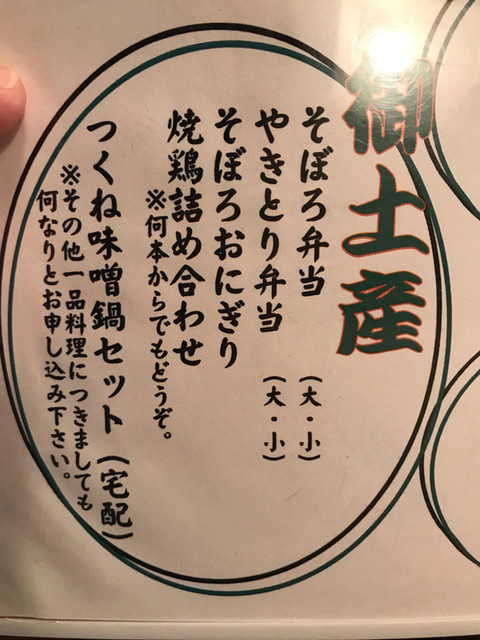 御土産
そぼろ弁当（大・小）
やきとり弁当（大・小）
そぼろおにぎり
焼鶏詰め合わせ
※何本からでもどうぞ。
つくね味噌鍋セット（宅配）
※その他一品料理につきましても
何なりとお申し込み下さい。